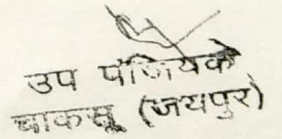 उप पंजियक
चाकसू (जयपुर)